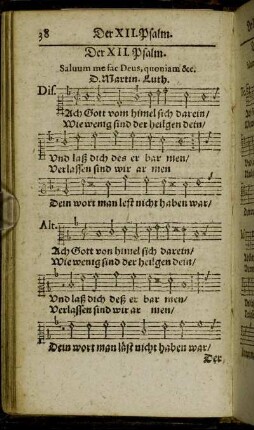 38 Der XII. Psalm.
Der XII. Psalm.
Saluum me fac Deus, quoniam &c.
D. Martin. Luth.
Dis.
Ach Gott vom himel sich darein/
Wie wenig sind der heilgen dein/
Vnd laß dich des er bar men/
Verlassen sind wir ar men
Dein wort man lest nicht haben war/
Alt.
Ach Gott von himel sich darein/
Wie wenig sind der heilgen dein/
Vnd laß dich deß er bar men/
Verlassen sind wir ar men/
Dein wort man läst nicht haben war/
Der